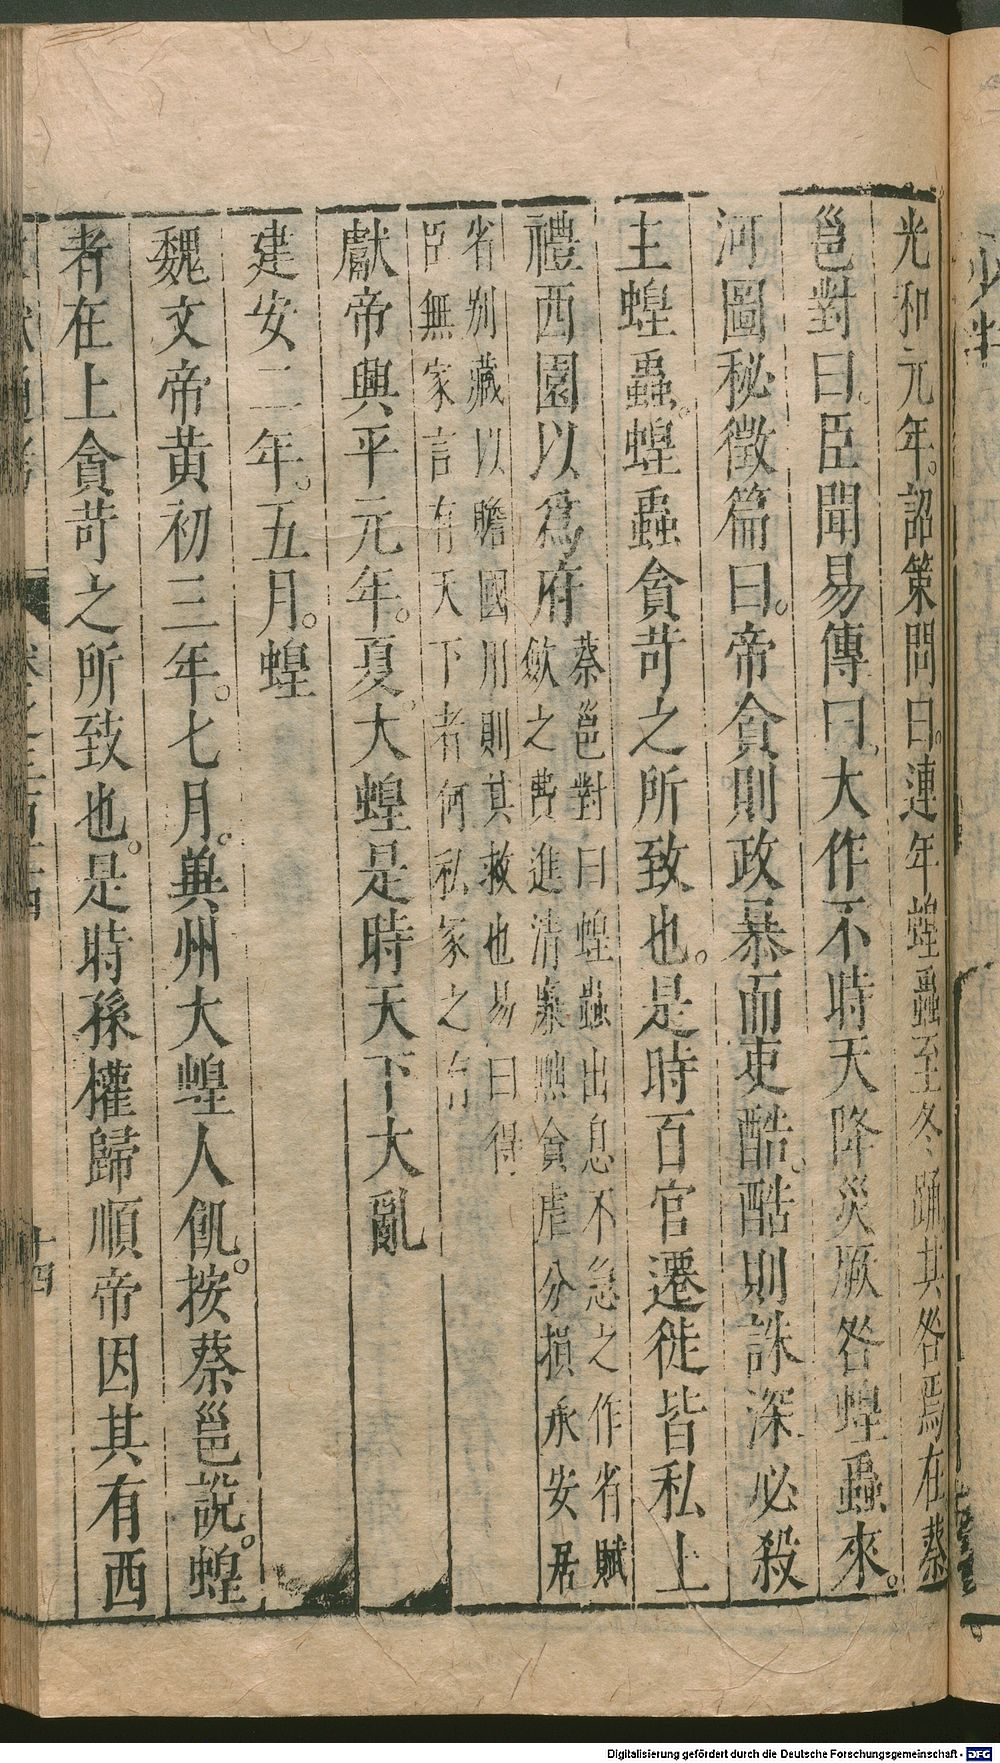 光和元年。詔策問曰。連年蝗蟲至冬踊其咎焉在蔡
邕對曰。臣聞易傳曰。大作不時天降災厥咎蝗蟲來。
河圖秘徵篇曰。帝貪則政暴而吏酷。酷則誅深必殺
主蝗蟲。蝗蟲貪苛之所致也。是時百官遷徙皆私上
禮西園以爲府
蔡邕對曰蝗蟲出息不急之作省賦
斂之費進清𣳾黜貪虐分損承安居
省別藏以贍國用則其救也易曰得
臣無家言有天下者何私家之有
獻帝興平元年。夏。大蝗是時天下大亂
建安二年。五月。蝗
魏文帝黃初三年。七月。兾州大蝗人飢。按蔡邕說。蝗
者在上貪苛之所致也。是時孫權歸順帝因其有西
十四
Digitalisierung gefördert durch die Deutsche Forschungsgemeinschaft - DFG